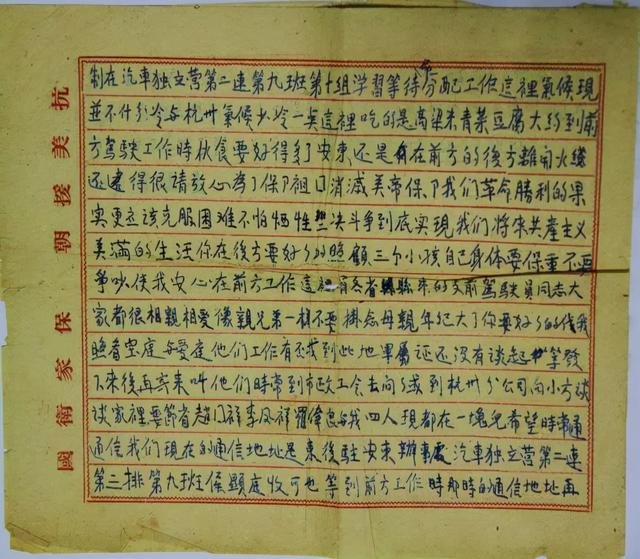 抗美援朝保家衛國
制在汽車独立营第二連第九班第十组学習等待命分配工作這裡氣候現
並不什分冷与杭州氣候少冷一点這裡吃的是高梁米青菜豆腐大约到前
方駕駛工作時伙食要好得多了安東还是在前方的後方離開火綫
还遠得很請放心為了保卫祖囗消滅美帝保卫我们革命勝利的果
实更应该克服困难不怕牺牲坚决斗争到底实現我们將来共產主义
美满的生活你在後方要好々的照顧三个小孩自己身体要保重不要
争吵使我安心在前方工作這裡有各省縣来的支前駕駛員同志大
家都很相親相爱像親兄弟一样不要掛念母親年纪大了你要好々的代我
照看宝庭与爱庭他们工作有否找到此地軍屬证还没有談起等發
下来後再寄来叫他们時常到市政工会去问々或到杭州分公司向小方谈
谈家裡要節省趙阿祥李凤祥羅偉忠与我四人現都在一塊兒希望時常通
通信我们現在的通信地址是東後駐安東辦事處汽車独立营第二連
第三排第九班侯顕庭收可也等到前方工作時那時的通信地址再